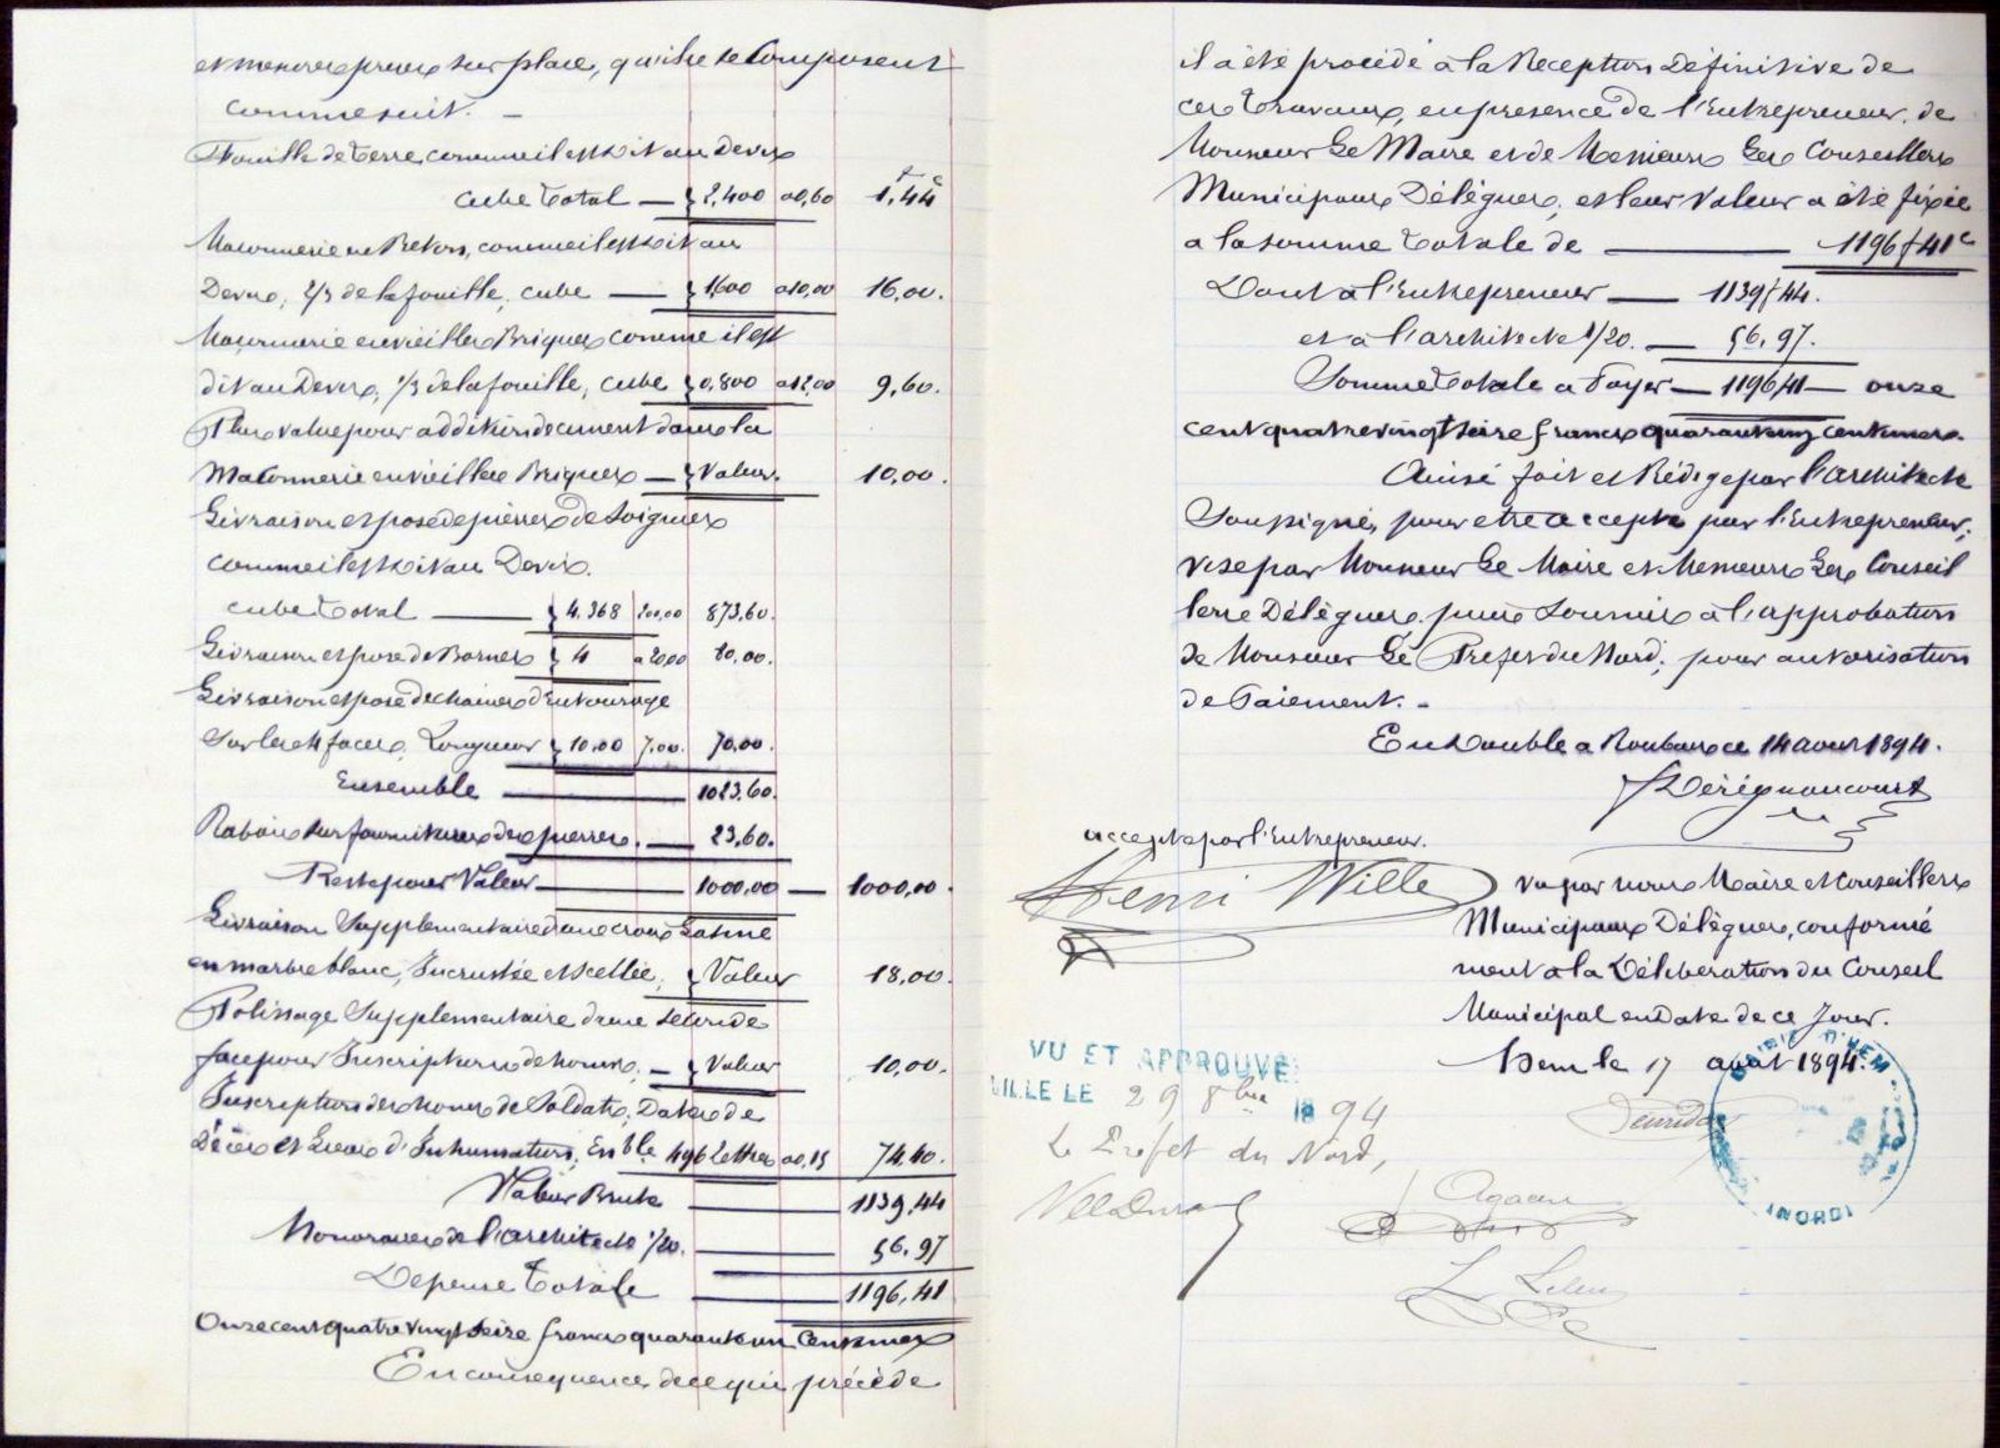 et mesures prises sur place, qu'ils se Composent
comme suit. -
Fouille de terre comme il est dit au Devis
f c
Cube total — 2,400 a 0,60 1,44
Maconnerie en Beton, comme il est dit au
Devis, 2/3 de la fouille, cube — 1,600 a 10,00 16,00.
Maconnerie en vieilles Briques comme il est
dit au Devis, 1/3 de la fouille, cube 0,800 a 12,00 9,60.
Plus value pour addition de ciment dans la
Maconnerie en vieilles Briques — Valeur. 10,00.
Livraison et pose de pierres de Soignies
comme il est dit au Devis.
cube total — 4.368 200,00 873,60.
Livraison et pose de Bornes 4 a 20,00 80,00.
Livraison et pose de chaines d'Entourage
Sur les 4 faces, Longueur 10,00 7,00. 70,00.
Ensemble — 1023,60.
Rabais sur fournitures des pierres. — 23,60.
Reste pour Valeur — 1000,00 — 1000,00.
Livraison Supplementaire d'une croix Latine
en marbre blanc, Incrustée et scellée, Valeur 18,00.
Polissage Supplementaire d'une seconde
face pour Inscriptions de noms, — Valeur 10,00.
Inscriptions des noms de Soldats, Dates de
Décès et Lieux d'Inhumations, Enble 496 Lettres a 0,15 74,40.
Valeur Brute — 1139,44
Honoraires de l'architecte 1/20. — 56,97
Depense totale — 1196,41
Onze cent quatre vingt seize francs quarante un Centimes
En consequence de ce qui précède
il a été procédé a la Reception Définitive de
ces travaux, en presence de l'Entrepreneur, de
Monsieur Le Maire et de Messieurs Les Conseillers
Municipaux Délégues, et leur Valeur a été fixée
a la somme totale de — 1196 f 41 c
Dont a l'Entrepreneur — 1139 f 44.
et à l'architecte 1/20. — 56,97.
Somme totale a Payer — 1196,41 — onze
cent quatre vingt seize francs quarante un centimes.
Ainsi fait et Rédigé par l'architecte
Soussigné, pour etre accepté par l'Entrepreneur,
visé par Monsieur Le Maire et Messieurs Les Conseil
lers Délégues, puis soumis à l'approbation
de Monsieur Le Prefet du Nord, pour autorisation
de Paiement. -
En Double a Roubaix ce 14 aout 1894.
Dérégnaucourt
accepté par l'Entrepreneur.
Henri Wille
Vu par nous Maire et Conseillers
Municipaux Délégues, conformé
ment a la Déliberation du Conseil
Municipal en Date de ce Jour.
Hem le 17 août 1894.
VU ET APPROUVÉ
LILLE LE 29 8bre 1894
Le Préfet du Nord,
MAIRIE D'HEM
(NORD)